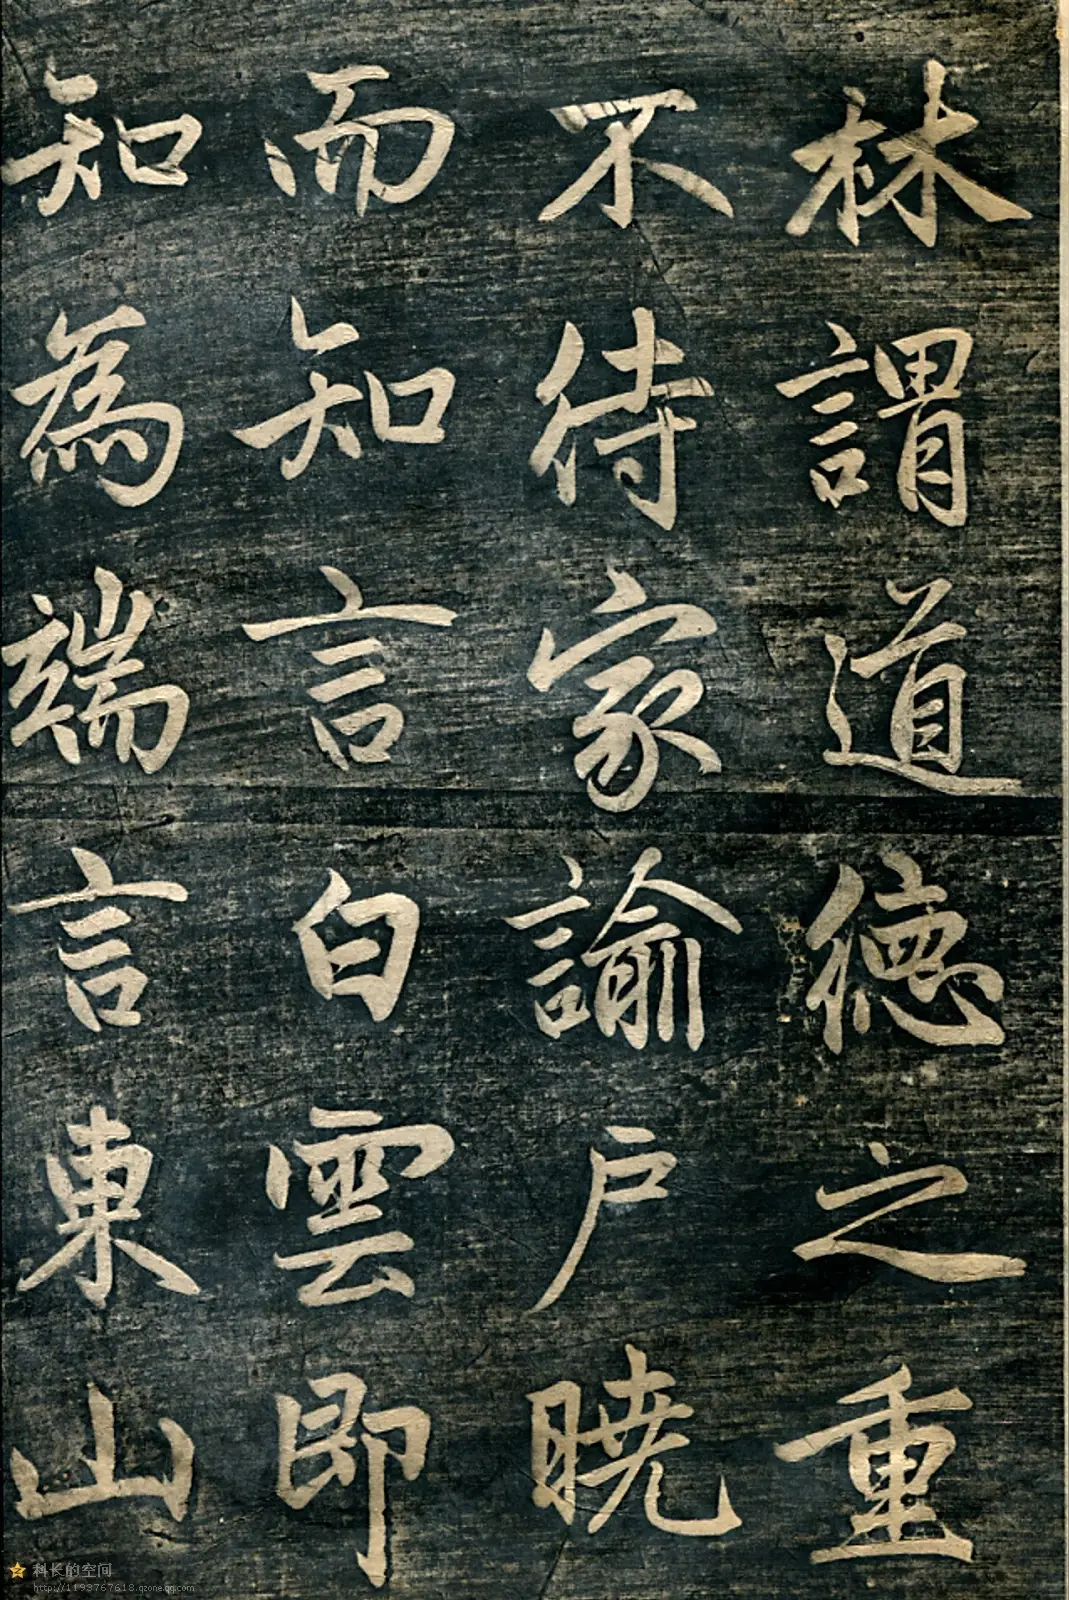 林謂道德之重
不待家諭戶曉
而知言白雲即
知為端言東山
科长的空间
http://1193767618.qzone.qq.com